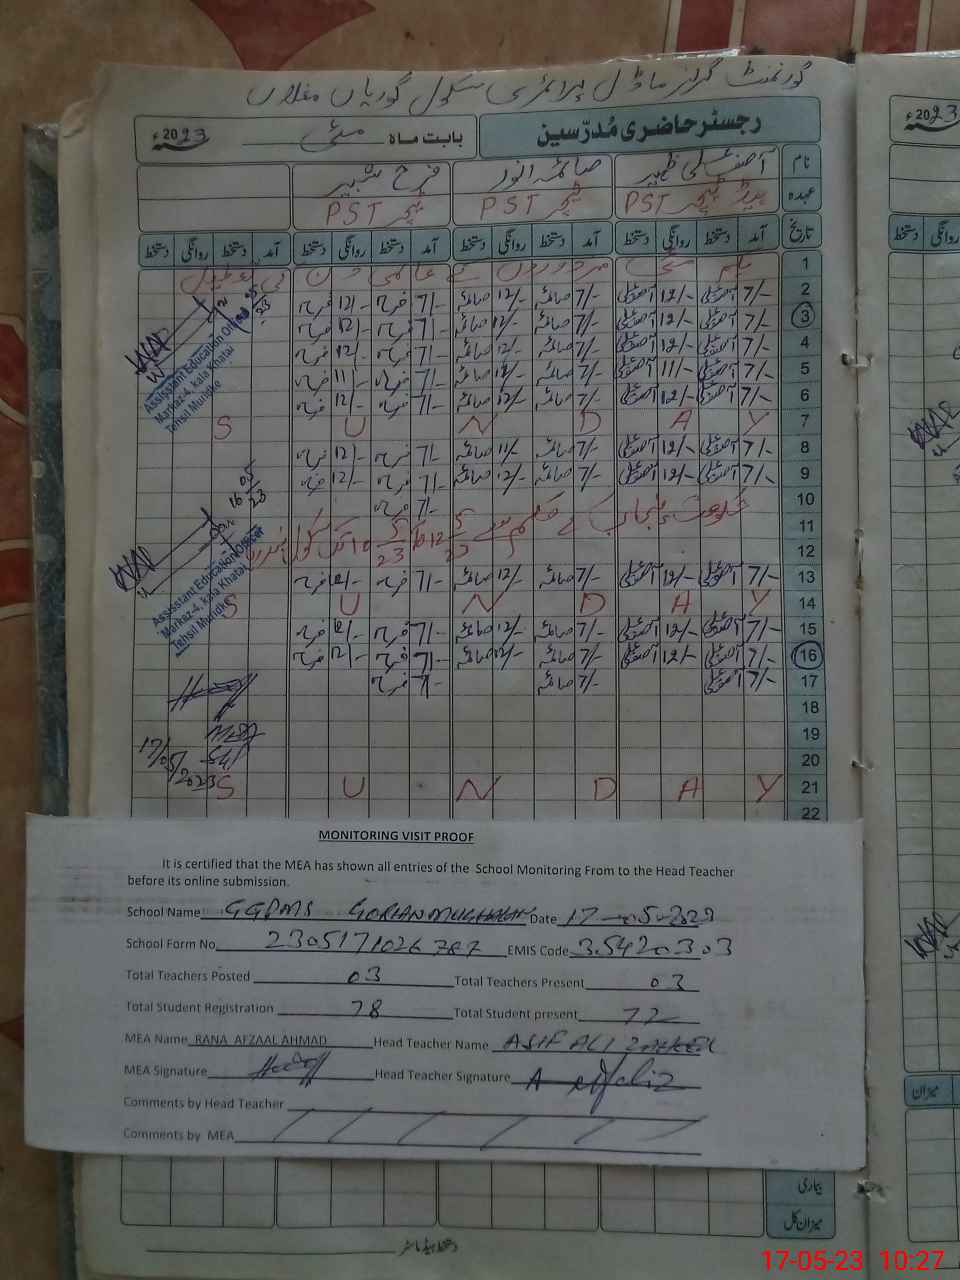 گورنمنٹ گرلز ماڈل پرائمری سکول گوریاں مغلاں
رجسٹر حاضری مُدرّسین
بابت ماہ مئی 2023ء
نام آصف علی ظہیر صائمہ انور فرح شبیر
عہدہ ہیڈ ٹیچر PST ٹیچر PST ٹیچر PST
تاریخ آمد دستخط روانگی دستخط آمد دستخط روانگی دستخط آمد دستخط روانگی دستخط آمد دستخط روانگی دستخط
1 یکم مئی مزدوروں کے عالمی دن کی تعطیل
2 7/- آصف علی 12/- آصف علی 7/- صائمہ 12/- صائمہ 7/- فرح 12/- فرح
3 7/- آصف علی 12/- آصف علی 7/- صائمہ 12/- صائمہ 7/- فرح 12/- فرح
4 7/- آصف علی 12/- آصف علی 7/- صائمہ 12/- صائمہ 7/- فرح 12/- فرح
5 7/- آصف علی 11/- آصف علی 7/- صائمہ صائمہ 7/- فرح 11/- فرح
6 7/- آصف علی 12/- آصف علی 7/- صائمہ 12/- صائمہ 7/- فرح 12/- فرح
7 S U N D A Y
8 7/- آصف علی 12/- آصف علی 7/- صائمہ صائمہ 7/- فرح 12/- فرح
9 7/- آصف علی 12/- آصف علی 7/- صائمہ 12/- صائمہ 7/- فرح 12/- فرح
10 7/- فرح
11 حکومت پنجاب کے حکم سے
12
13 7/- آصف علی 12/- آصف علی 7/- صائمہ 12/- صائمہ 7/- فرح 12/- فرح
14 S U N D A Y
15 7/- آصف علی 12/- آصف علی 7/- صائمہ 12/- صائمہ 7/- فرح 12/- فرح
16 7/- آصف علی 12/- آصف علی 7/- صائمہ 12/- صائمہ 7/- فرح 12/- فرح
17 7/- آصف علی 7/- صائمہ 7/- فرح
18
19
20
21 S U N D A Y
22
Assisstant Education Officer
Markaz-4, kala Khatai
Tehsil Muridke
16 05 23
Assisstant Education Officer
Markaz-4, kala Khatai
Tehsil Muridke
MEA
17/05/2023
MONITORING VISIT PROOF
It is certified that the MEA has shown all entries of the School Monitoring From to the Head Teacher
before its online submission.
School Name GGPMS GORIAN MUGHALAN Date 17-05-2023
School Form No 2305171026787 EMIS Code 35420303
Total Teachers Posted 03 Total Teachers Present 03
Total Student Registration 78 Total Student present 72
MEA Name RANA AFZAAL AHMAD Head Teacher Name ASIF ALI ZAHEER
MEA Signature Head Teacher Signature
Comments by Head Teacher
Comments by MEA
بیماری
میزان کل
دستخط ہیڈ ماسٹر
2023ء
دستخط روانگی
میزان
17-05-23 10:27